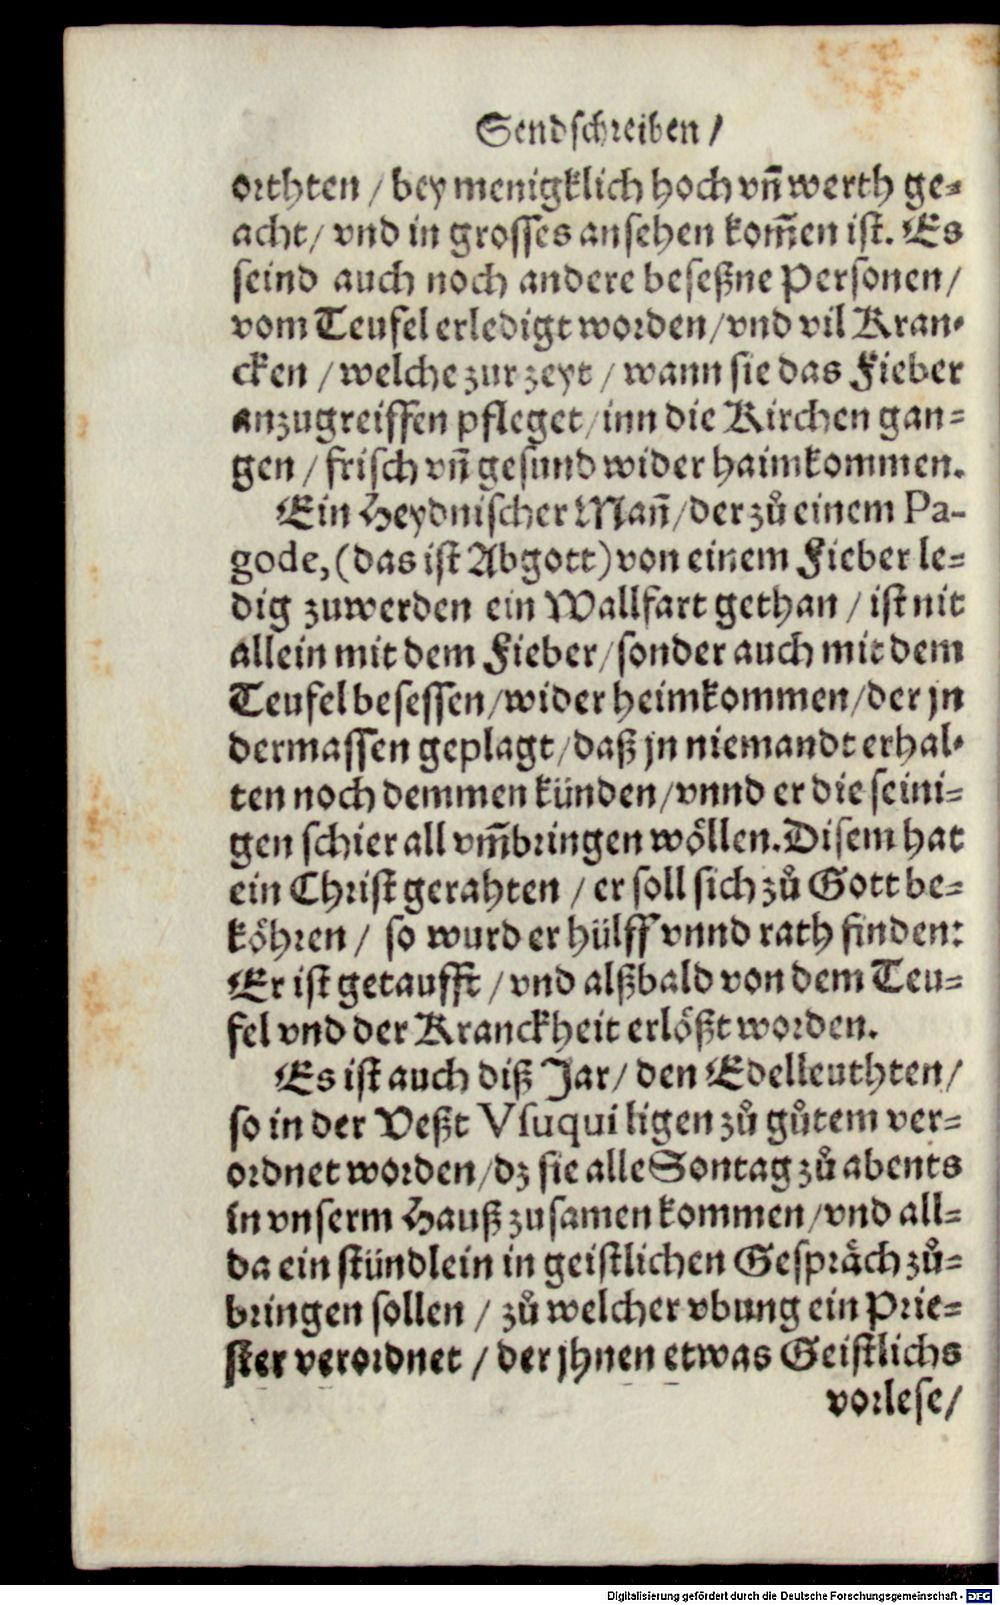 Sendschreiben /
orthten / bey menigklich hoch vñ werth ge-
acht / vnd in grosses ansehen kom̃en ist. Es
seind auch noch andere beseßne Personen /
vom Teufel erledigt worden / vnd vil Kran-
cken / welche zur zeyt / wann sie das Fieber
anzugreiffen pfleget / inn die Kirchen gan-
gen / frisch vñ gesund wider haimkommen.
Ein Heydnischer Mañ / der zů einem Pa-
gode, (das ist Abgott) von einem Fieber le-
dig zuwerden ein Wallfart gethan / ist nit
allein mit dem Fieber / sonder auch mit dem
Teufel besessen / wider heimkommen / der jn
dermassen geplagt / daß jn niemandt erhal-
ten noch demmen künden / vnnd er die seini-
gen schier all vm̃bringen wöllen. Disem hat
ein Christ gerahten / er soll sich zů Gott be-
köhren / so wurd er hülff vnnd rath finden:
Er ist getaufft / vnd alßbald von dem Teu-
fel vnd der Kranckheit erlößt worden.
Es ist auch diß Jar / den Edelleuthten /
so in der Veßt Vsuqui ligen zů gůtem ver-
ordnet worden / dz sie alle Sontag zů abents
in vnserm Hauß zusamen kommen / vnd all-
da ein stündlein in geistlichen Gespräch zů-
bringen sollen / zů welcher vbung ein Prie-
ster verordnet / der jhnen etwas Geistlichs
vorlese /
Digitalisierung gefördert durch die Deutsche Forschungsgemeinschaft - DFG